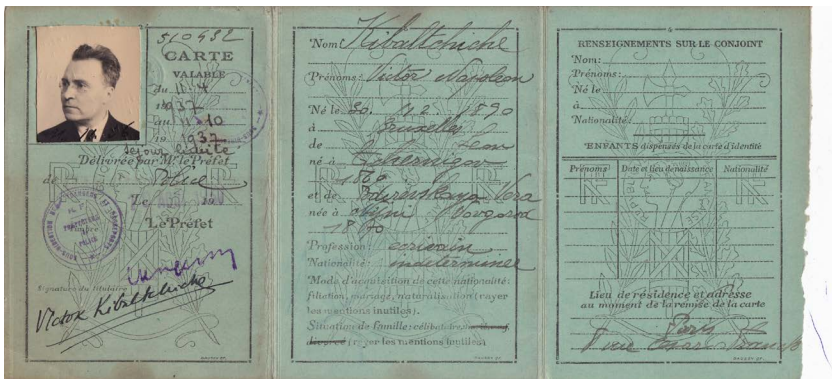 510432
CARTE
VALABLE
du 11-4
1937
au 11 10
1937
séjour limité
Délivrée par Mr le Préfet
de Police
Le
Le Préfet
Signature du titulaire
Victor Kibaltchiche
Nom: Kibaltchiche
Prénoms: Victor Napoléon
Né le 30. 12 1890
à Bruxelles
de
né à Tchernigov
1869
et de Vera
née à Novgorod
1870
Profession: écrivain
Nationalité: indéterminée
Mode d'acquisition de cette nationalité:
filiation, mariage, naturalisation (rayer
les mentions inutiles).
Situation de famille:
(rayer les mentions inutiles)
RENSEIGNEMENTS SUR LE CONJOINT
Nom:
Prénoms:
Né le
à
Nationalité:
ENFANTS dispensés de la carte d'identité
Prénoms Date et lieu de naissance Nationalité
Lieu de résidence et adresse
au moment de la remise de la carte
Paris
rue César Franck